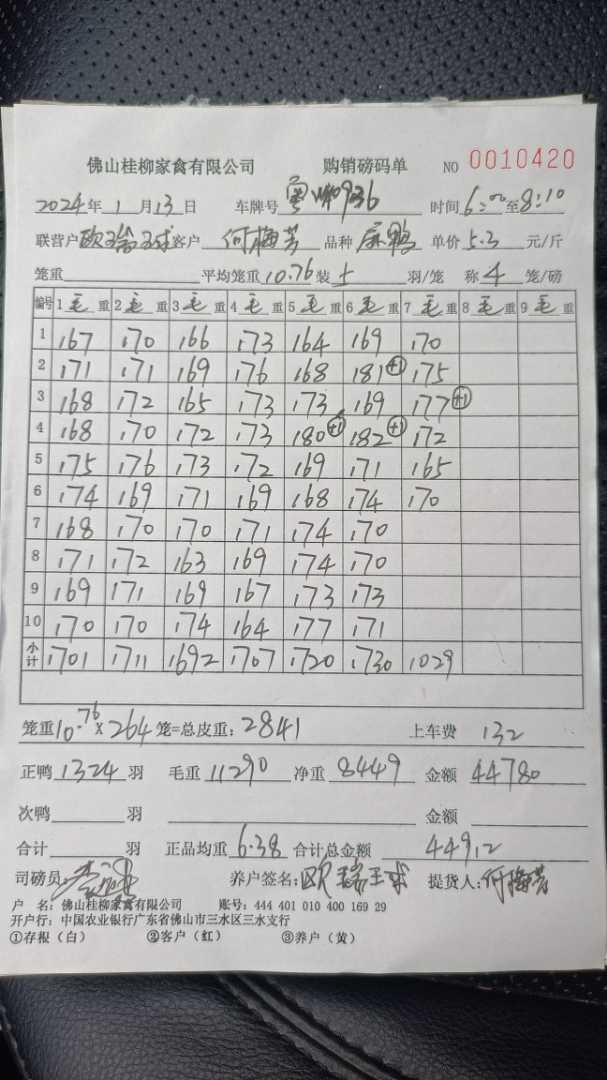 佛山桂柳家禽有限公司 购销磅码单 NO 0010420
2024年1月13日 车牌号 粤 936 时间6:00至8:10
联营户欧瑞球客户 何梅芳 品种 麻鸭 单价5.3元/斤
笼重 平均笼重10.76装 5 羽/笼 称4笼/磅
编号 1毛重 2毛重 3毛重 4毛重 5毛重 6毛重 7毛重 8毛重 9毛重
1 167 170 166 173 164 169 170
2 171 171 169 176 168 181(+1) 175
3 168 172 165 173 173 169 177(+1)
4 168 170 172 173 180(+1) 182(+1) 172
5 175 176 173 172 169 171 165
6 174 169 171 169 168 174 170
7 168 170 170 171 174 170
8 171 172 163 169 174 170
9 169 171 169 167 173 173
10 170 170 174 164 177 171
小计 1701 1711 1692 1707 1720 1730 1029
笼重10.76×264笼=总皮重:2841 上车费 132
正鸭1324羽 毛重11290 净重8449 金额44780
次鸭 羽 金额
合计 羽 正品均重6.38 合计总金额 44912
司磅员: 养户签名:欧瑞球 提货人:何梅芳
户 名:佛山桂柳家禽有限公司 账号:444 401 010 400 169 29
开户行:中国农业银行广东省佛山市三水区三水支行
①存根(白) ②客户(红) ③养户(黄)